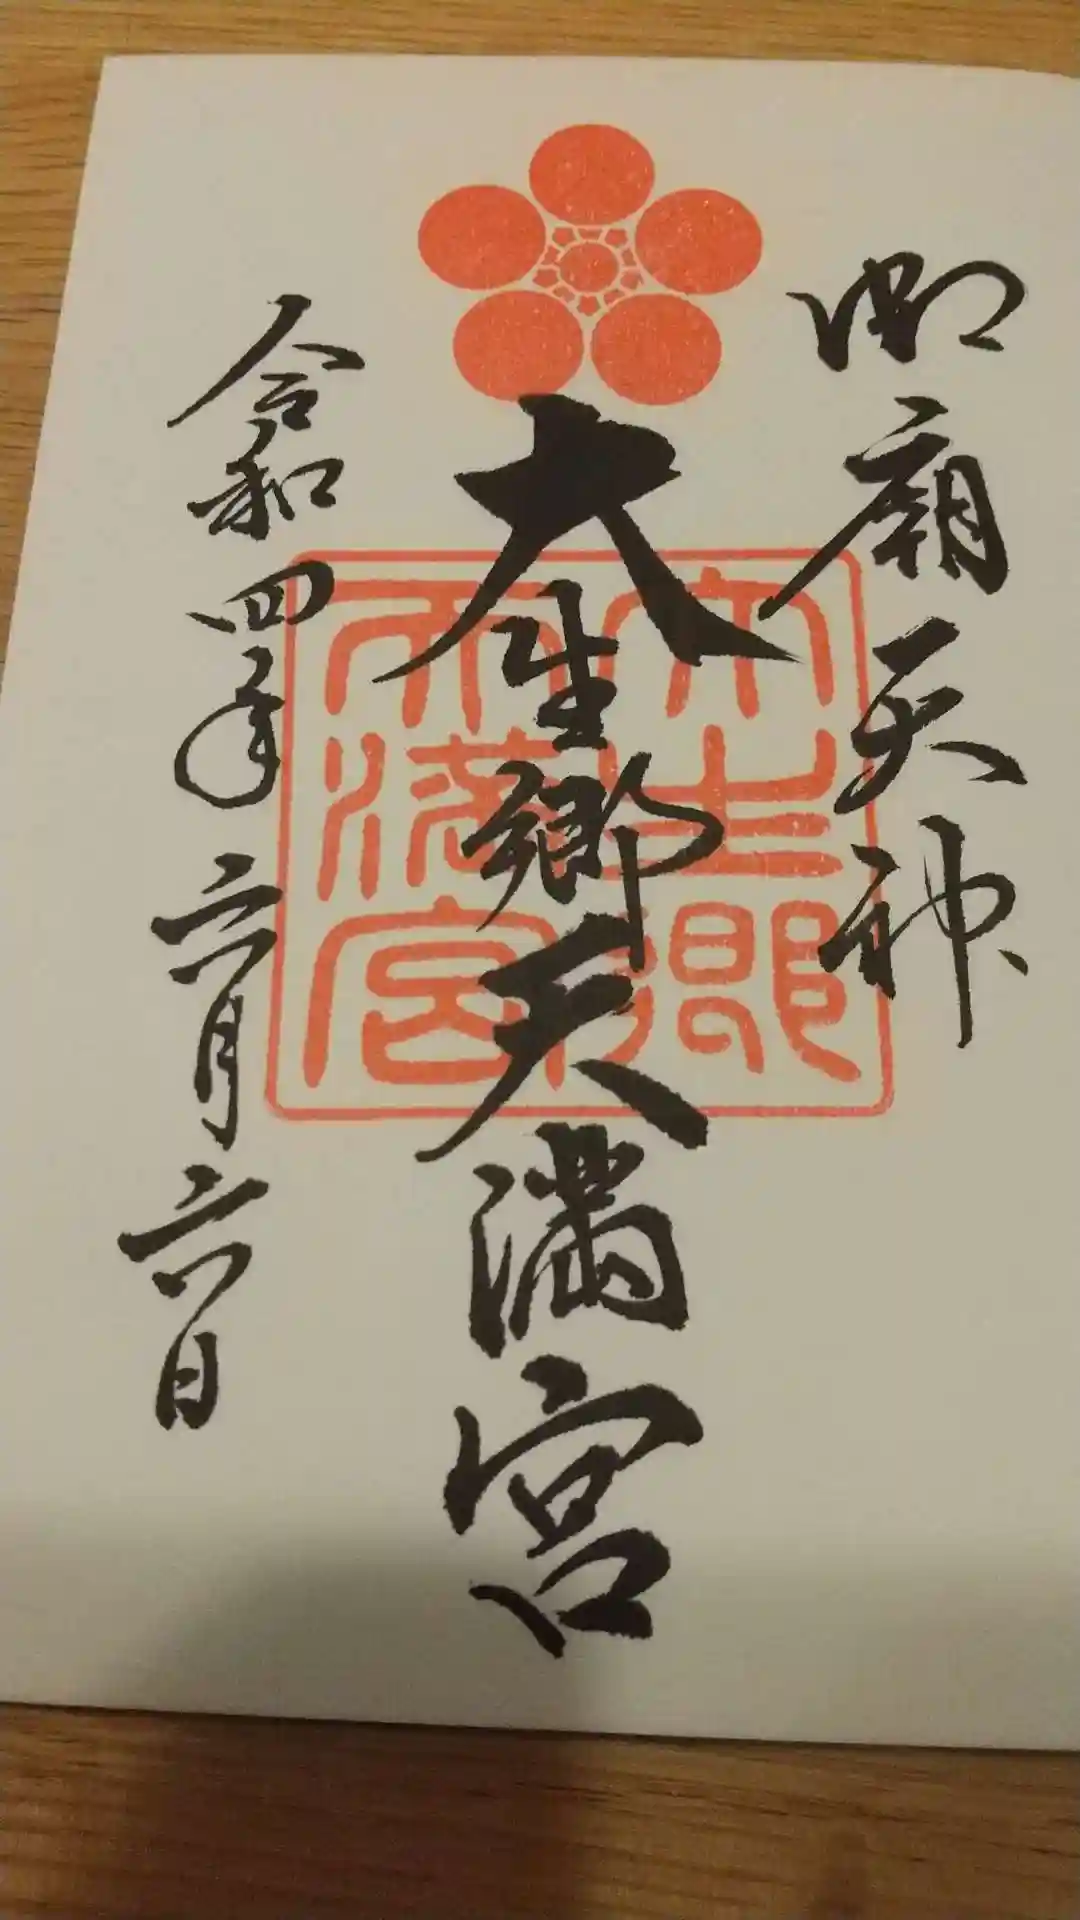 御廟天神
大生郷天満宮
大生郷
天満宮
令和四年六月六日